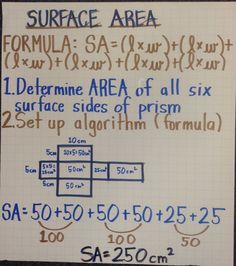 SURFACE AREA
FORMULA: SA=(l×w)+(l×w)+
(l×w)+(l×w)+(l×w)+(l×w)
1.Determine AREA of all six
surface sides of prism
2.Set up algorithm (formula)
10cm
5cm 10x5=50cm²
5cm 5x5= 25cm² 50cm² 25cm² 50cm²
5cm 50cm²
SA=50+50+50+50+25+25
100 100 50
SA=250cm²